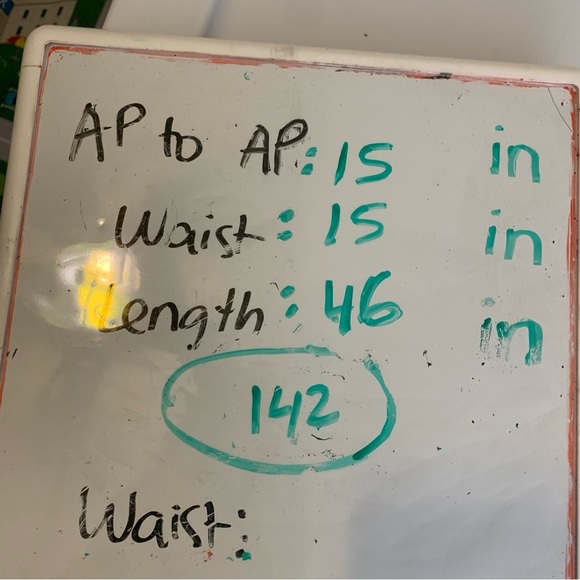 AP to AP: 15 in
Waist: 15 in
Length: 46 in
142
Waist: